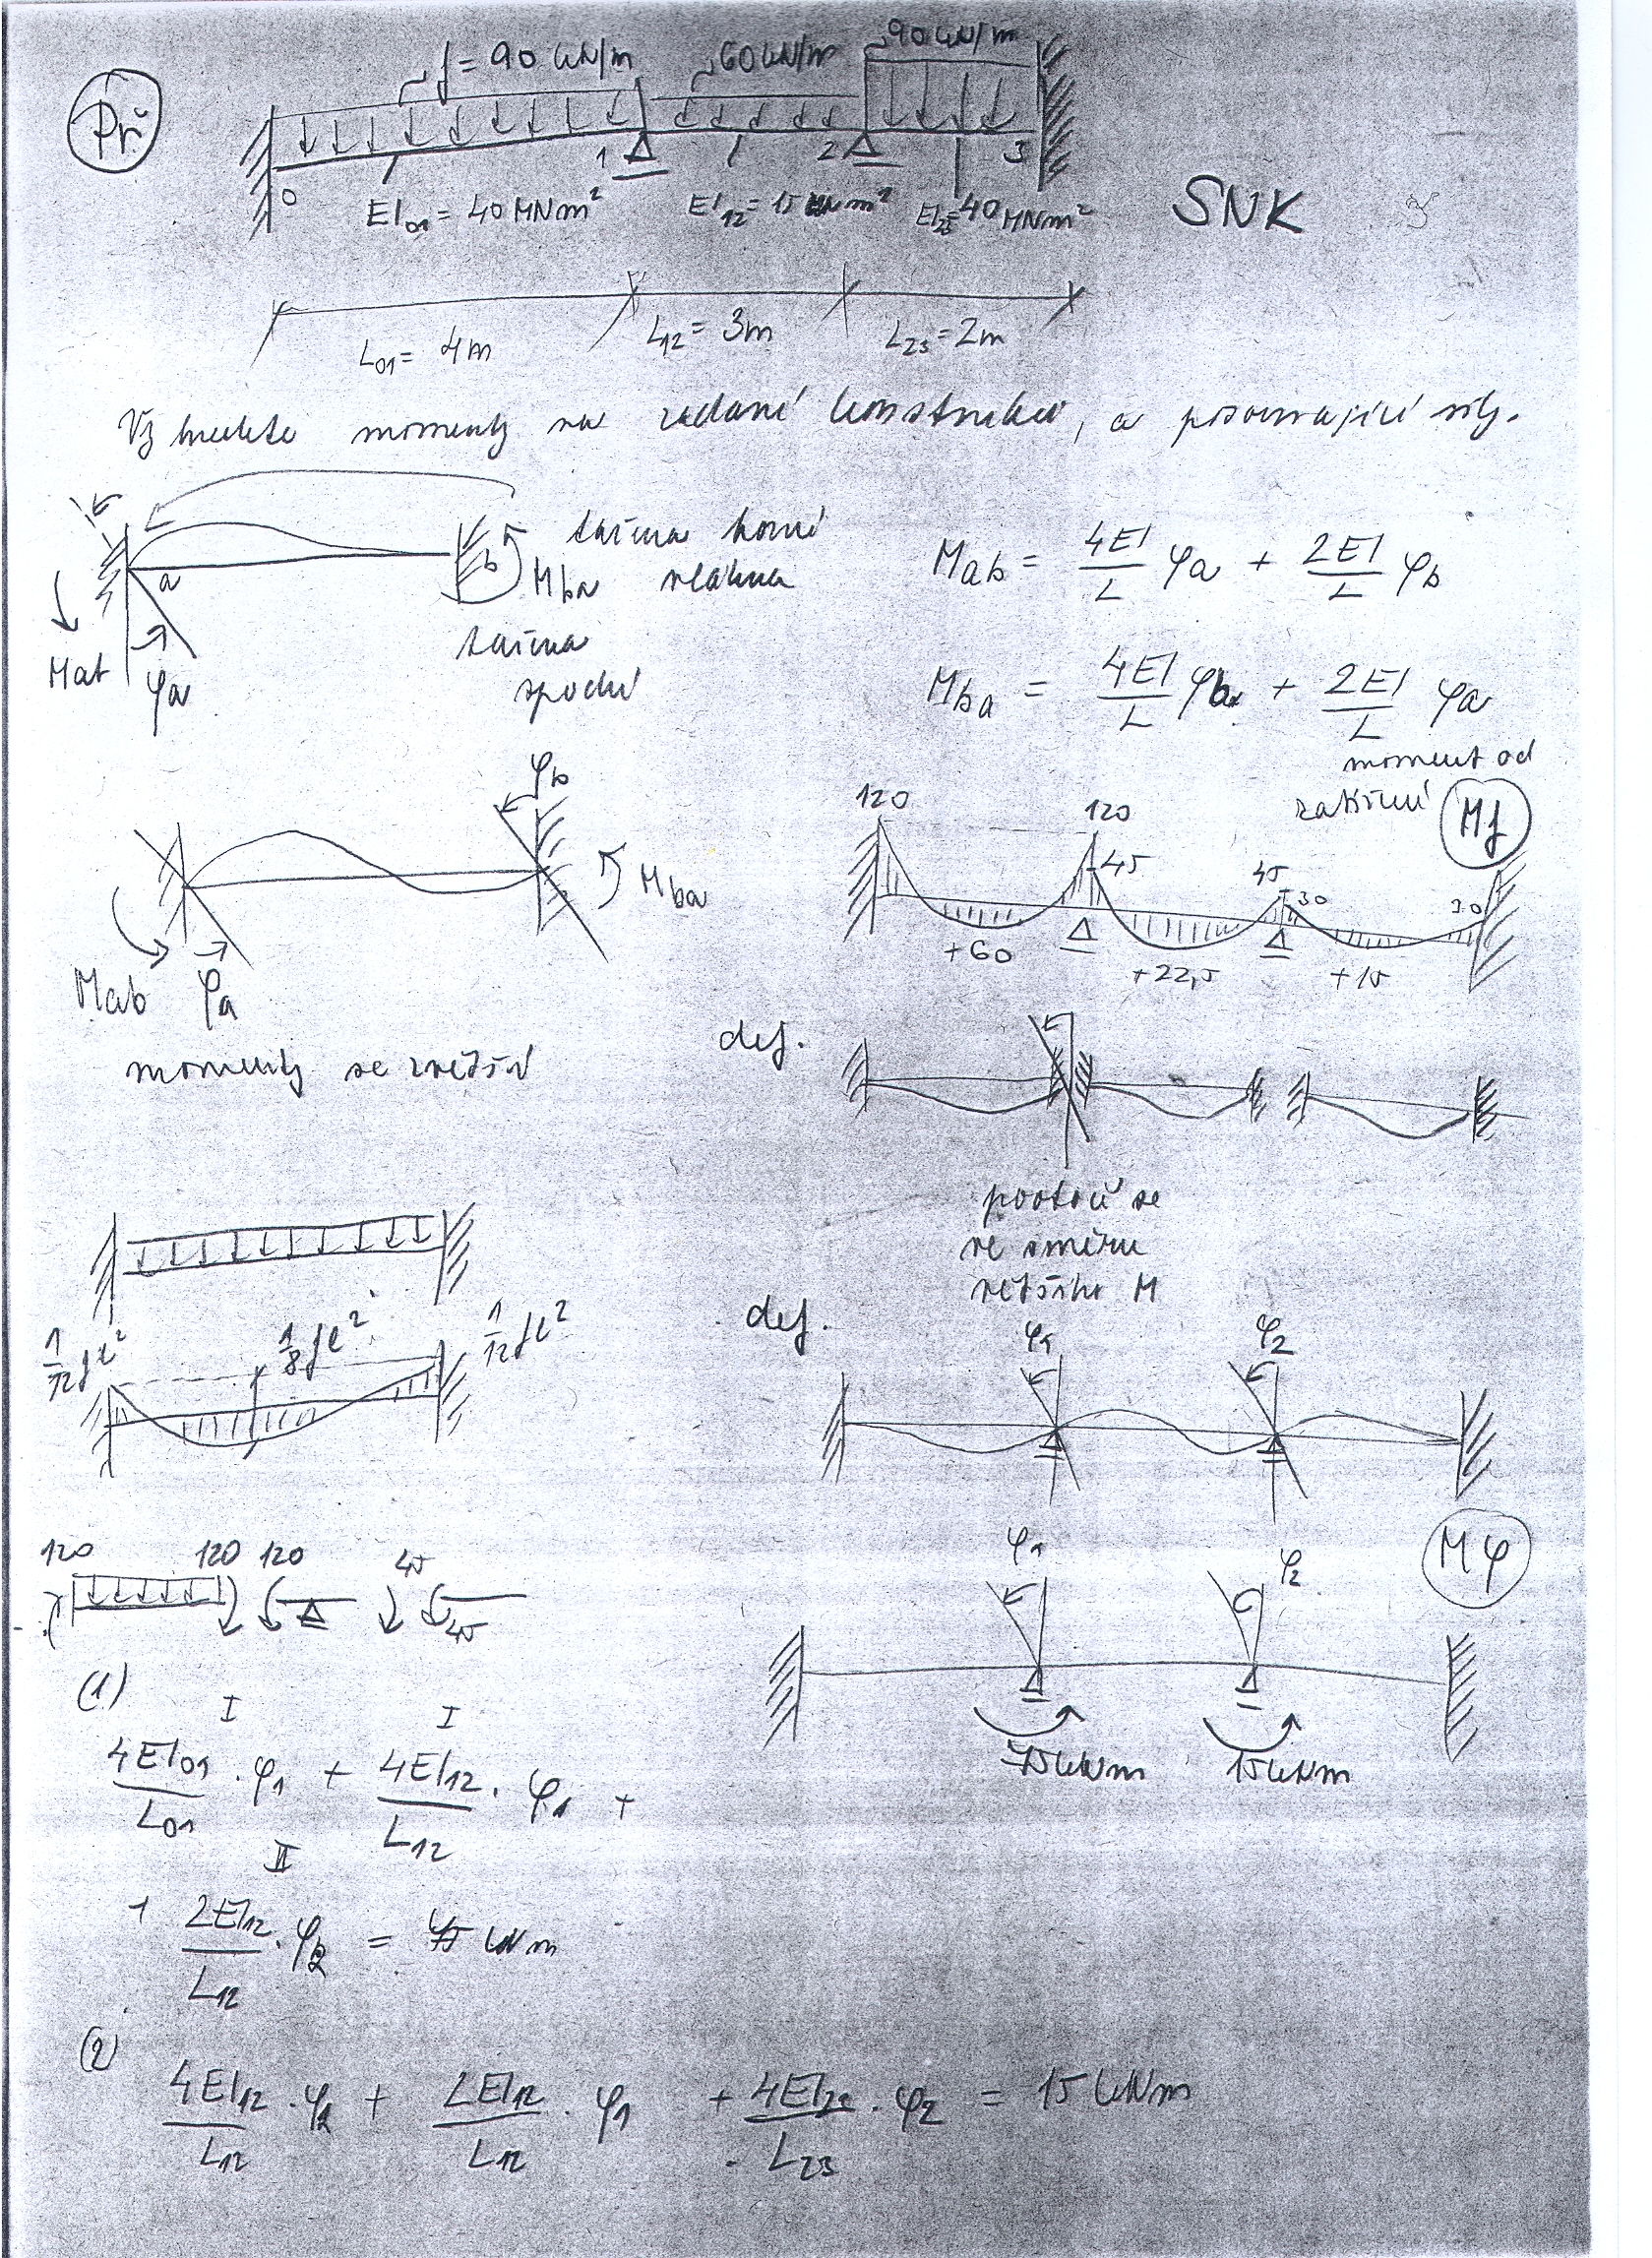 Př
f = 90 kN/m
60 kN/m
90 kN/m
0
1
2
3
EI01 = 40 MNm²
EI12 = 15 MNm²
EI23 = 40 MNm²
SNK
L01 = 4m
L12 = 3m
L23 = 2m
momenty na zadané konstrukci, a posouvající síly.
a
b
Mba
tažena horní
vlákna
tažena
spodní
Mab
φa
Mab = 4EI/L φa + 2EI/L φb
Mba = 4EI/L φb + 2EI/L φa
φb
Mba
Mab
φa
momenty se zvětší
moment od
zatížení
Mf
120
120
45
45
30
30
+60
+22,5
+15
def.
pootočí se
ve směru
většího M
1/12 fl²
1/8 fl²
1/12 fl²
def.
φ1
φ2
Mφ
φ1
φ2
75 kNm
15 kNm
120
120
120
45
45
(1)
I
I
4EI01/L01 · φ1 + 4EI12/L12 · φ1 +
II
+ 2EI12/L12 · φ2 = 75 kNm
(2)
4EI12/L12 · φ2 + 2EI12/L12 · φ1 + 4EI23/L23 · φ2 = 15 kNm